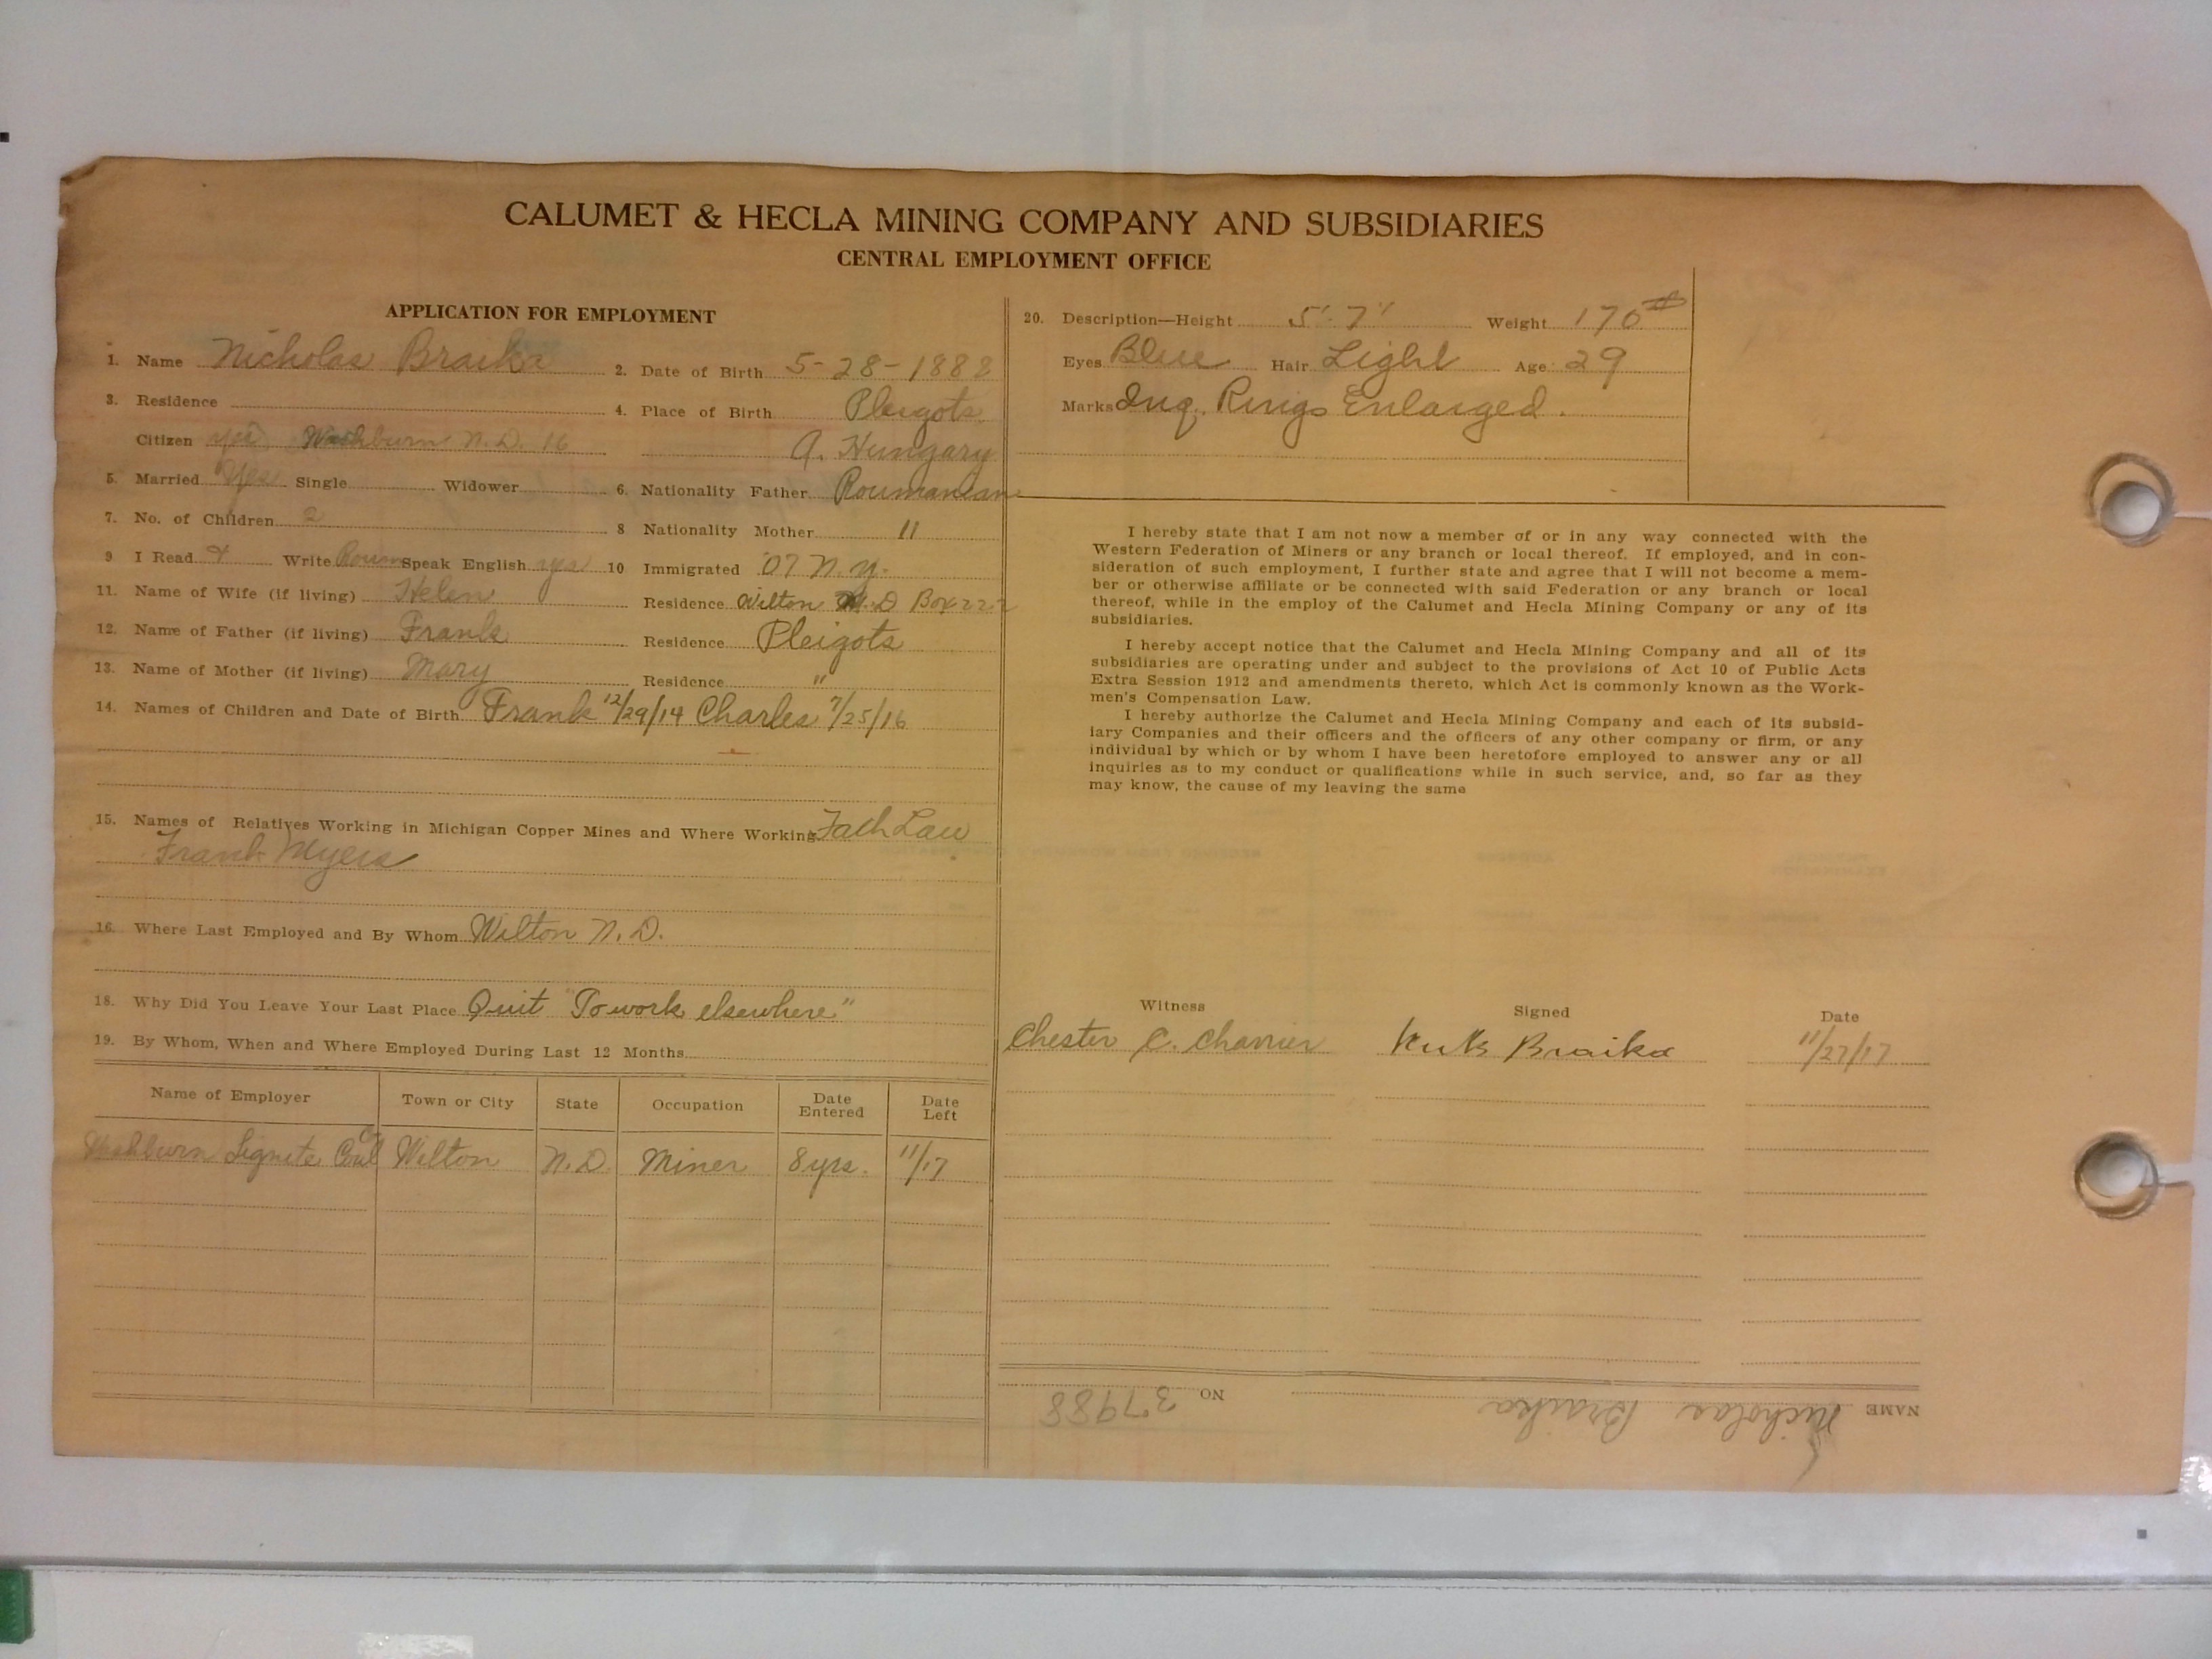 CALUMET & HECLA MINING COMPANY AND SUBSIDIARIES
CENTRAL EMPLOYMENT OFFICE
APPLICATION FOR EMPLOYMENT
1. Name Nicholas Braika 2. Date of Birth 5-28-1888
3. Residence 4. Place of Birth Pleigots
Citizen yes Washburn N.D. 16 A. Hungary
5. Married Yes Single Widower 6. Nationality Father Roumanian
7. No. of Children 2 8 Nationality Mother "
9 I Read & Write Roum Speak English yes 10 Immigrated '07 N.Y.
11. Name of Wife (if living) Helen Residence Wilton N.D Box 222
12. Name of Father (if living) Frank Residence Pleigots
13. Name of Mother (if living) Mary Residence "
14. Names of Children and Date of Birth Frank 12/29/14 Charles 7/25/16
15. Names of Relatives Working in Michigan Copper Mines and Where Working Fath Law
Frank Myers
16. Where Last Employed and By Whom Wilton N.D.
18. Why Did You Leave Your Last Place Quit "To work elsewhere"
19. By Whom, When and Where Employed During Last 12 Months
Name of Employer Town or City State Occupation Date Entered Date Left
Washburn Lignite Coal Co Wilton N.D. Miner 8 yrs. 11/17
20. Description—Height 5' 7" Weight 170#
Eyes Blue Hair Light Age 29
Marks Ing. Rings Enlarged.
I hereby state that I am not now a member of or in any way connected with the
Western Federation of Miners or any branch or local thereof. If employed, and in con-
sideration of such employment, I further state and agree that I will not become a mem-
ber or otherwise affiliate or be connected with said Federation or any branch or local
thereof, while in the employ of the Calumet and Hecla Mining Company or any of its
subsidiaries.
I hereby accept notice that the Calumet and Hecla Mining Company and all of its
subsidiaries are operating under and subject to the provisions of Act 10 of Public Acts
Extra Session 1912 and amendments thereto, which Act is commonly known as the Work-
men's Compensation Law.
I hereby authorize the Calumet and Hecla Mining Company and each of its subsid-
iary Companies and their officers and the officers of any other company or firm, or any
individual by which or by whom I have been heretofore employed to answer any or all
inquiries as to my conduct or qualifications while in such service, and, so far as they
may know, the cause of my leaving the same
Witness Signed Date
Chester C. Charrier Braika 11/27/17
NAME Nicholas Braika NO 37988